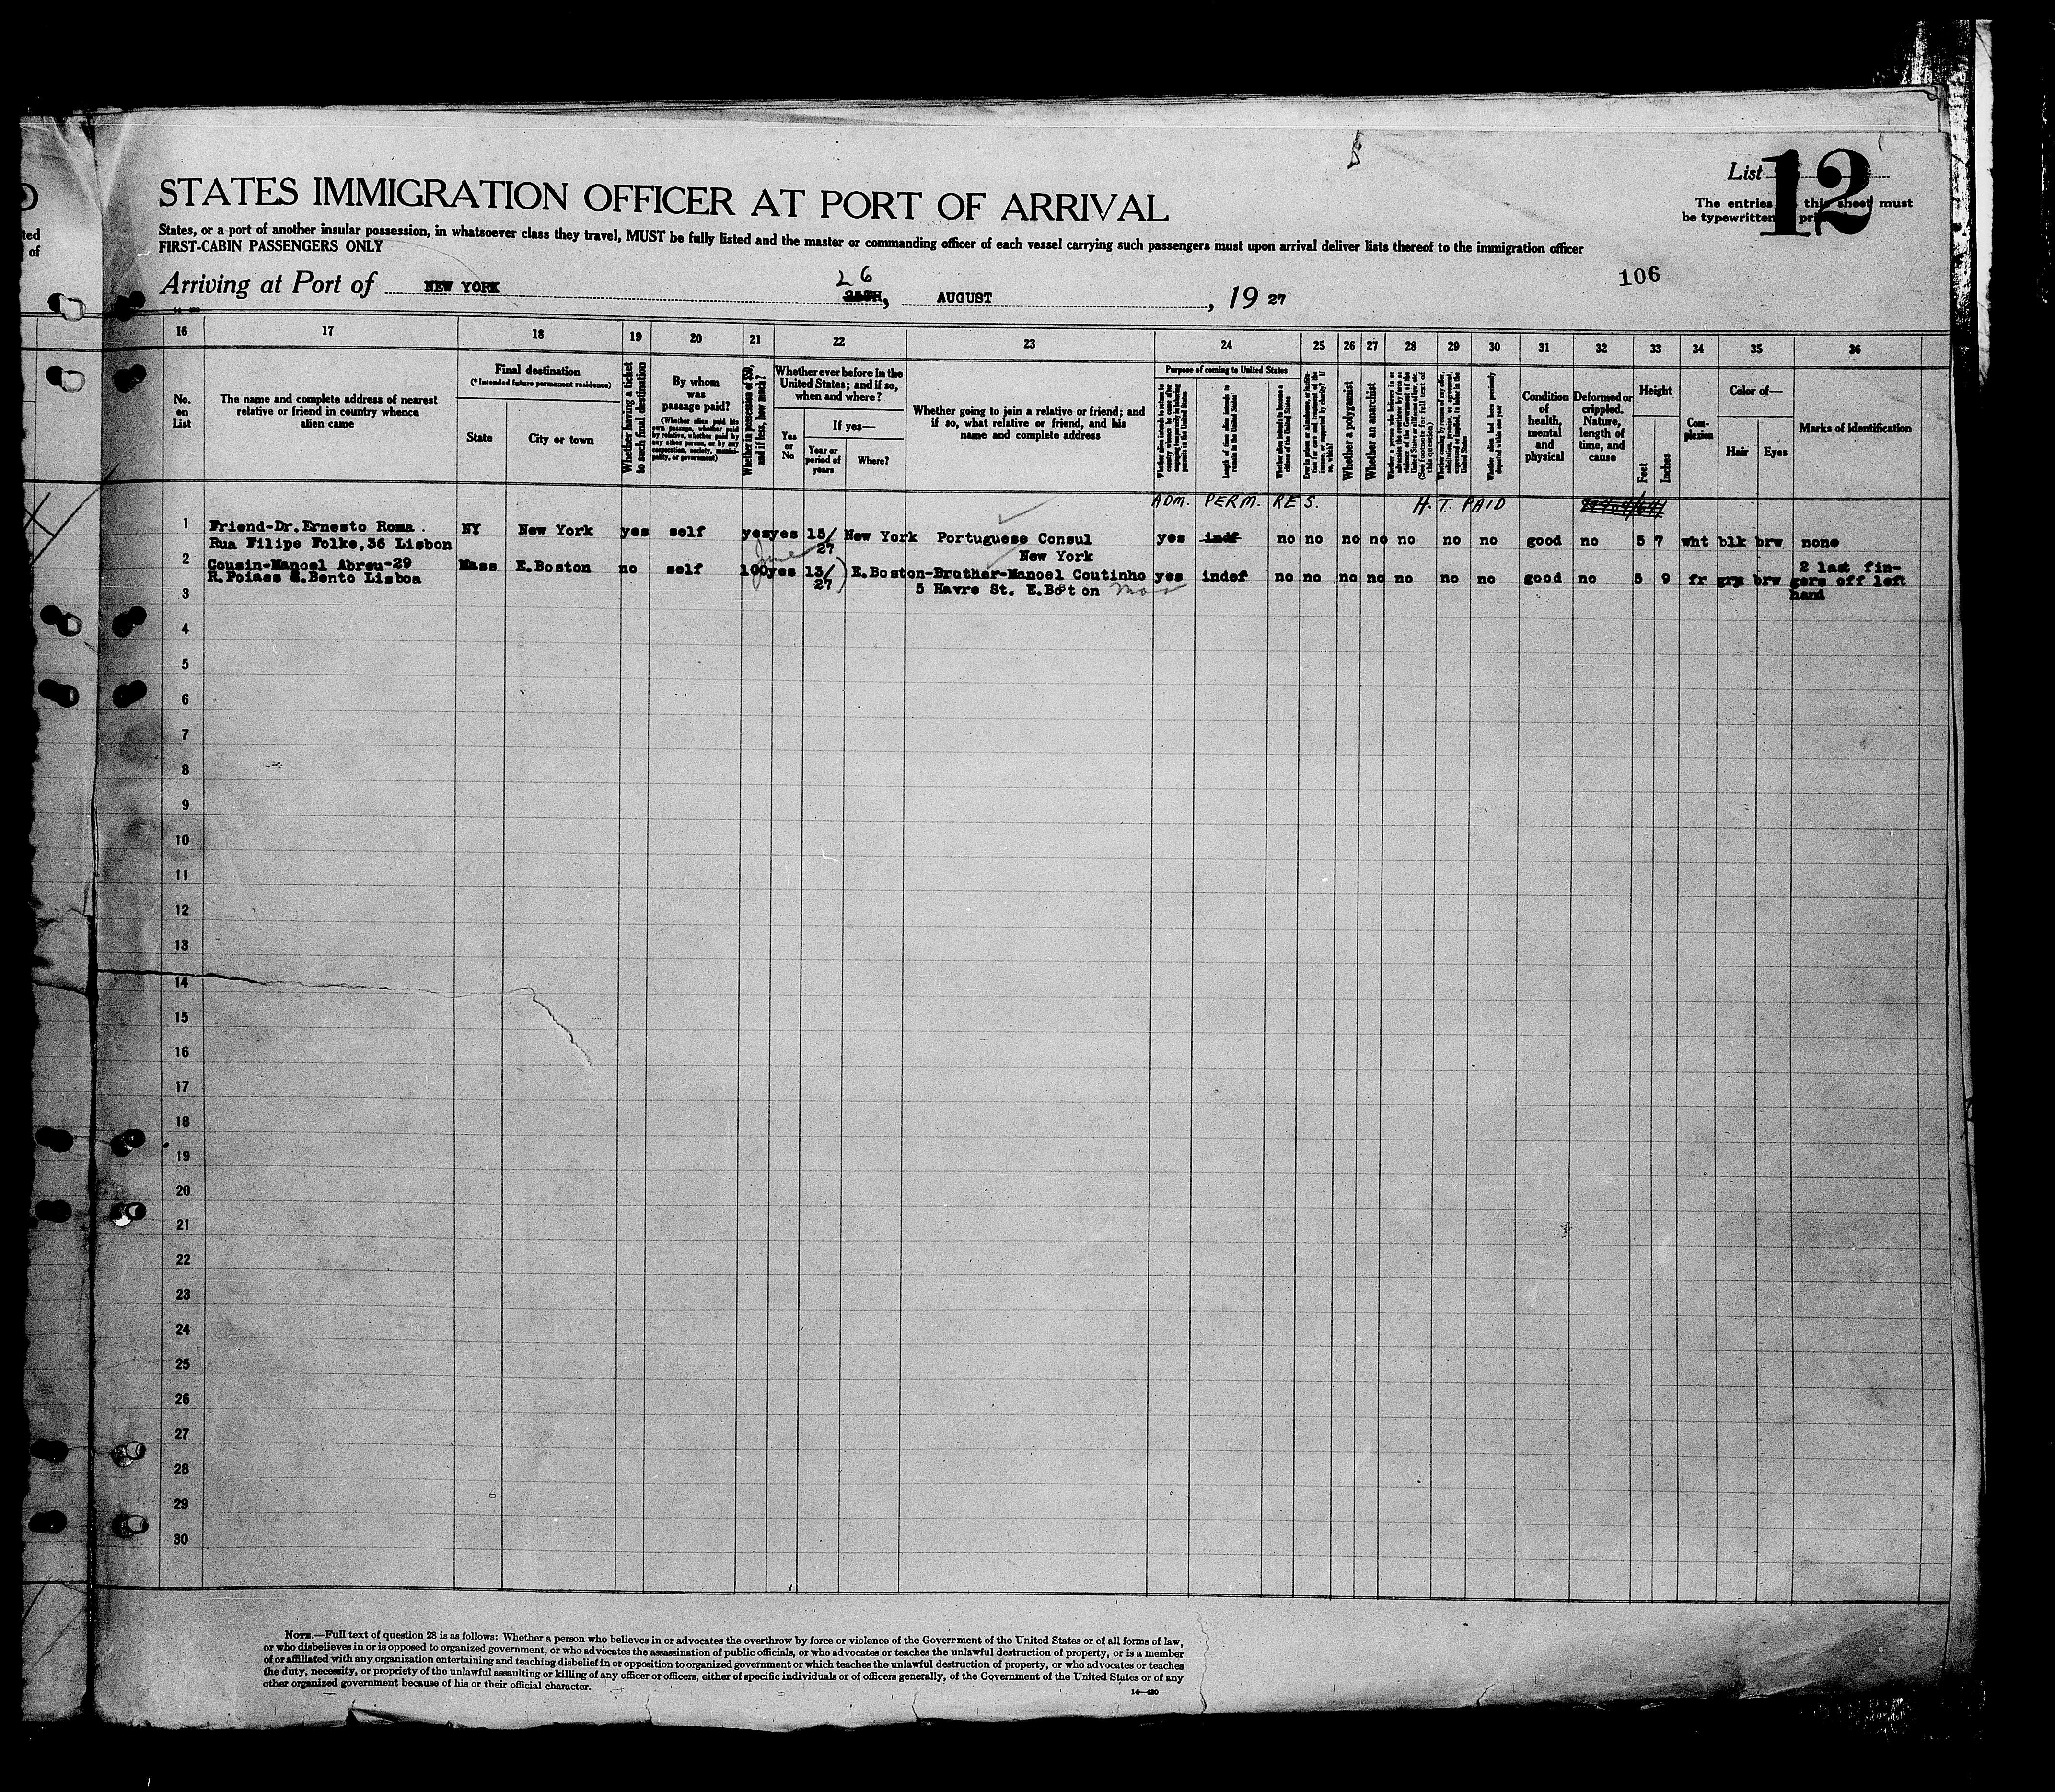 List 12
STATES IMMIGRATION OFFICER AT PORT OF ARRIVAL
The entries this sheet must
be typewritten pri
States, or a port of another insular possession, in whatsoever class they travel, MUST be fully listed and the master or commanding officer of each vessel carrying such passengers must upon arrival deliver lists thereof to the immigration officer
FIRST-CABIN PASSENGERS ONLY
ted
of
106
26
Arriving at Port of NEW YORK 25TH, AUGUST, 19 27
16 17 18 19 20 21 22 23 24 25 26 27 28 29 30 31 32 33 34 35 36
No. on List
The name and complete address of nearest relative or friend in country whence alien came
Final destination
(*Intended future permanent residence)
State
City or town
Whether having a ticket to such final destination
By whom was passage paid?
(Whether alien paid his own passage, whether paid by relative, whether paid by any other person, or by any corporation, society, municipality, or government)
Whether in possession of $50, and if less, how much?
Whether ever before in the United States; and if so, when and where?
Yes or No
If yes—
Year or period of years
Where?
Whether going to join a relative or friend; and if so, what relative or friend, and his name and complete address
Purpose of coming to United States
Whether alien intends to return to country whence he came after engaging temporarily in laboring pursuits in the United States
Length of time alien intends to remain in the United States
Whether alien intends to become a citizen of the United States
Whether a polygamist
Whether an anarchist
Whether alien had been previously deported within one year
Condition of health, mental and physical
Deformed or crippled. Nature, length of time, and cause
Height
Feet
Inches
Complexion
Color of—
Hair
Eyes
Marks of identification
ADM. PERM. RES. H.T. PAID
1 Friend-Dr.Ernesto Roma. NY New York yes self yes yes 15/ New York Portuguese Consul yes indf no no no no no no no good no 5 7 wht blk brw none
Rua Filipe Folke,36 Lisbon 27 New York
June
2 Cousin-Manoel Abreu-29 Mass E.Boston no self 100 yes 13/ E.Boston-Brother-Manoel Coutinho yes indef no no no no no no no good no 5 9 fr gry brw 2 last fin-
R.Poiaes S.Bento Lisboa 27 5 Havre St. E.Boston Mass gers off left
hand
3
4
5
6
7
8
9
10
11
12
13
14
15
16
17
18
19
20
21
22
23
24
25
26
27
28
29
30
NOTE.—Full text of question 28 is as follows: Whether a person who believes in or advocates the overthrow by force or violence of the Government of the United States or of all forms of law,
or who disbelieves in or is opposed to organized government, or who advocates the assassination of public officials, or who advocates or teaches the unlawful destruction of property, or is a member
of or affiliated with any organization entertaining and teaching disbelief in or opposition to organized government or which teaches the unlawful destruction of property, or who advocates or teaches
the duty, necessity, or propriety of the unlawful assaulting or killing of any officer or officers, either of specific individuals or of officers generally, of the Government of the United States or of any
other organized government because of his or their official character.
14—430